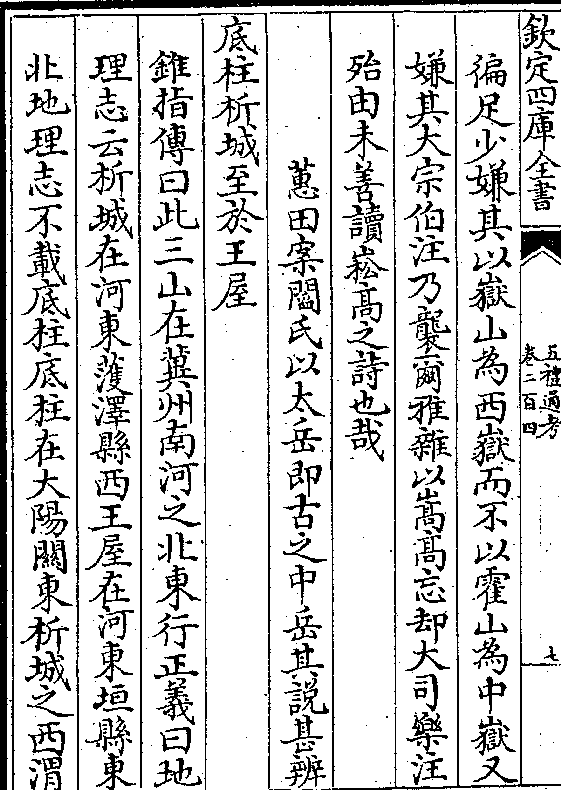 欽定四庫全書
五禮通考
卷二百四
七
徧足少嫌其以嶽山為西嶽而不以霍山為中嶽又
嫌其大宗伯注乃襲爾雅雜以嵩高忘却大司樂注
殆由未善讀崧高之詩也哉
蕙田案閻氏以太岳即古之中岳其說甚辨
底柱析城至於王屋
錐指傳曰此三山在冀州南河之北東行正義曰地
理志云析城在河東濩澤縣西王屋在河東垣縣東
北地理志不載底柱底柱在大陽關東析城之西渭